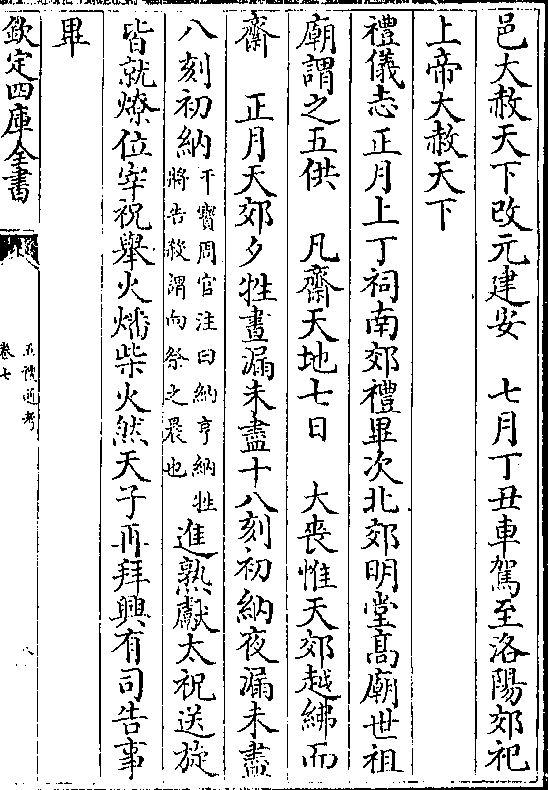 邑大赦天下改元建安　七月丁丑車駕至洛陽郊祀
上帝大赦天下
禮儀志正月上丁祠南郊禮畢次北郊明堂髙廟世祖
廟謂之五供　凡齋天地七日　大喪惟天郊越紼而
齋　正月天郊夕牲晝漏未盡十八刻初納夜漏未盡
八刻初納干寳周官注曰納亨納牲將告殺謂向祭之晨也進熟獻太祝送旋
皆就燎位宰祝舉火燔柴火然天子再拜興有司告事
畢
欽定四庫全書
五禮通考
卷七
八